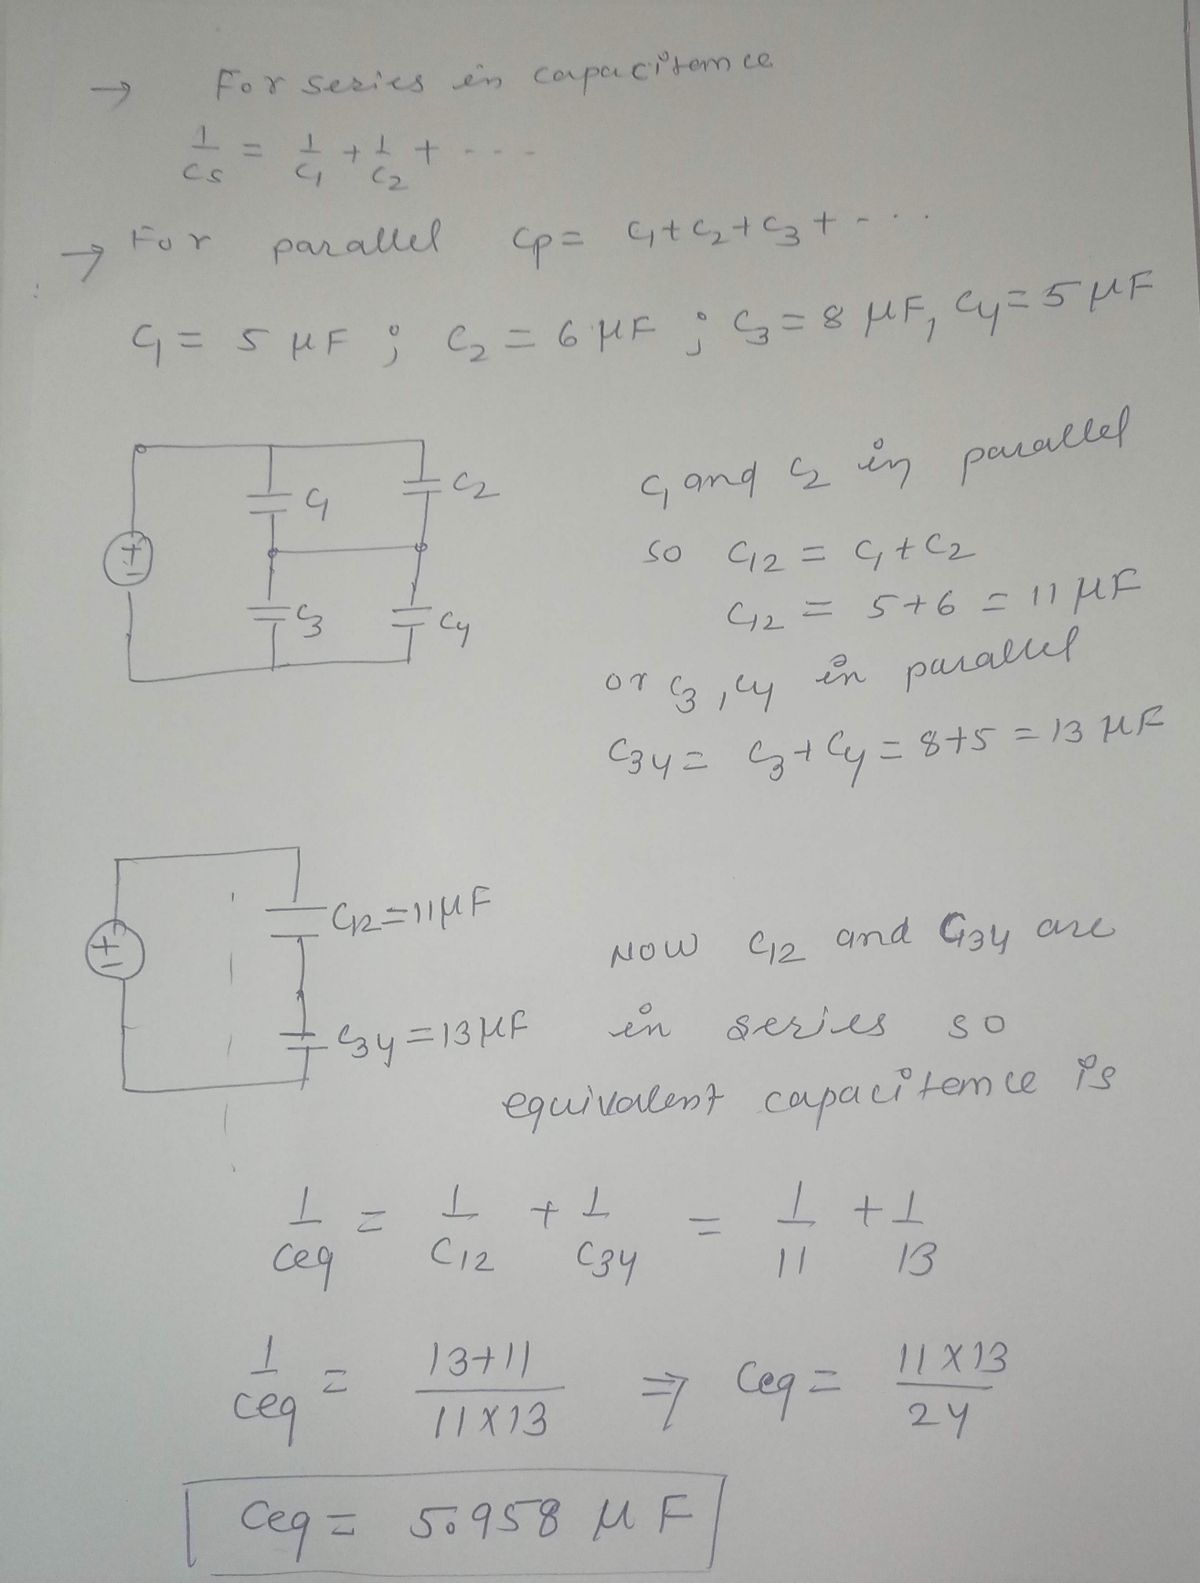 → For series in capacitemce
1/Cs = 1/C1 + 1/C2 + - - -
→ For parallel Cp = C1+C2+C3+ - . . .
C1 = 5 μF ; C2 = 6 μF ; C3 = 8 μF, C4 = 5 μF
C1 C2
+ -
C3 C4
C1 and C2 in parallel
so C12 = C1+C2
C12 = 5+6 = 11 μF
or C3, C4 in parallel
C34 = C3+C4 = 8+5 = 13 μF
C12=11μF
+ -
C34=13μF
NOW C12 and C34 are
in series so
equivalent capacitemce is
1/Ceq = 1/C12 + 1/C34 = 1/11 + 1/13
1/Ceq = 13+11/11X13 ⇒ Ceq = 11X13/24
Ceq = 5.958 μF